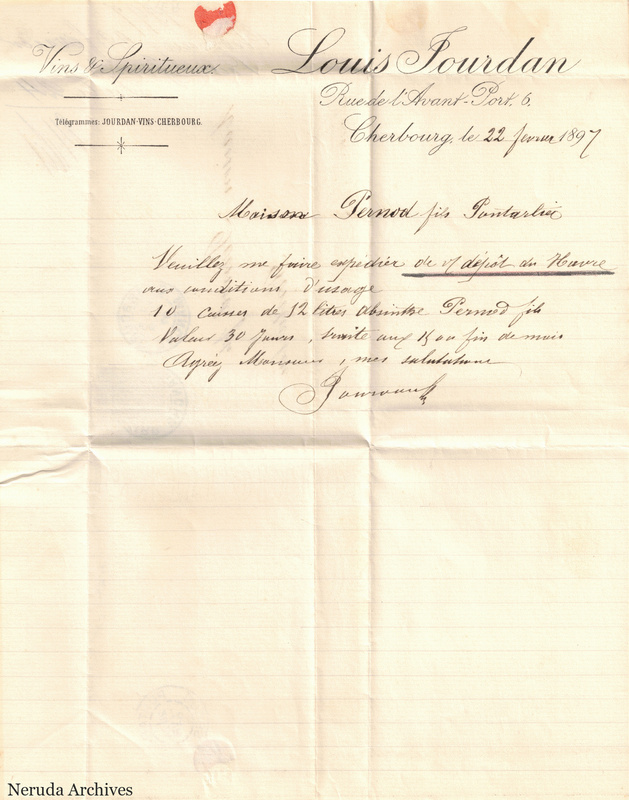 Vins & Spiritueux.
Télégrammes: JOURDAN-VINS-CHERBOURG.
Louis Jourdan
Rue de l'Avant-Port, 6.
Cherbourg, le 22 fevrier 1897
Maison Pernod fils Pontarlier
Veuillez me faire expédier de v/ dépôt du Havre
aux conditions d'usage
10 caisses de 12 litres absinthe Pernod fils
Valeur 30 jours, traite aux 15 ou fin de mois
Agréez Monsieur, mes salutations
Jourdan
Neruda Archives